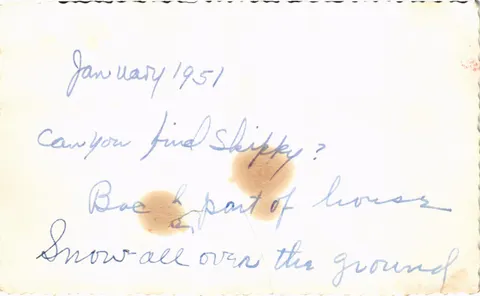 January 1951
Can you find Skippy?
Back part of house
Snow all over the ground